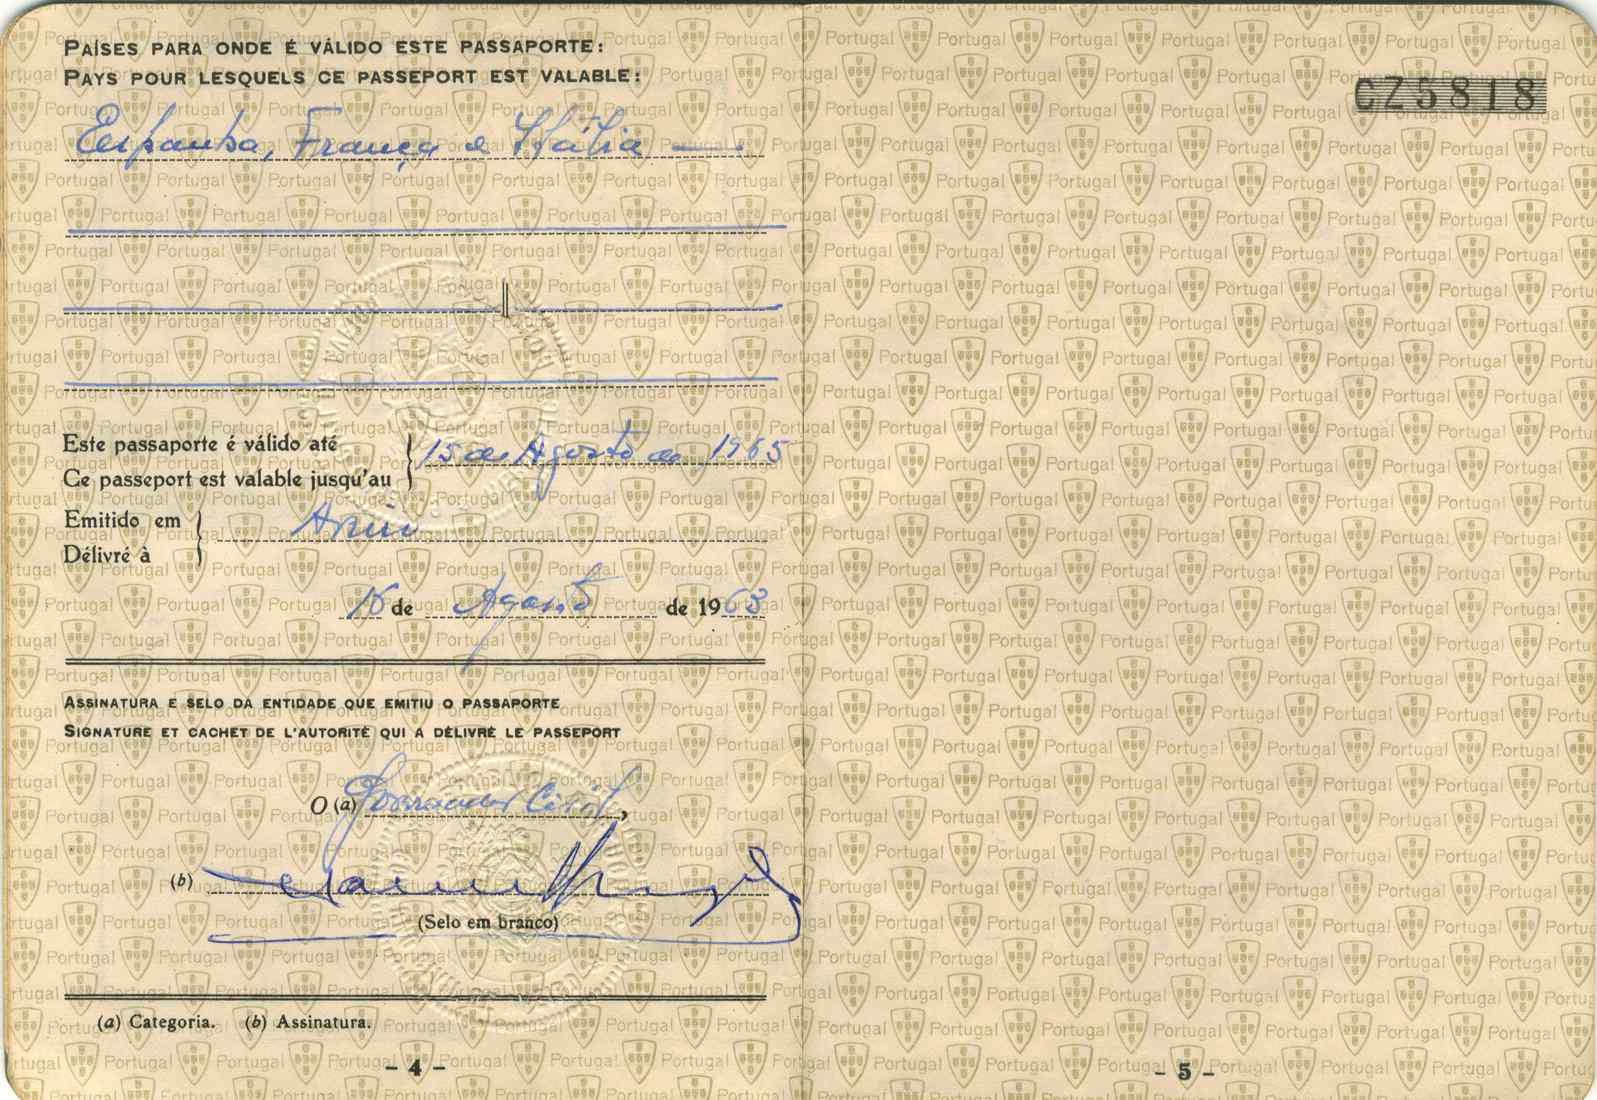 PAÍSES PARA ONDE É VÁLIDO ESTE PASSAPORTE:
PAYS POUR LESQUELS CE PASSEPORT EST VALABLE:
Espanha, França e Itália
Este passaporte é válido até
Ce passeport est valable jusqu'au
15 de Agosto de 1965
Emitido em
Délivré à
16 de Agosto de 1963
ASSINATURA E SELO DA ENTIDADE QUE EMITIU O PASSAPORTE
SIGNATURE ET CACHET DE L'AUTORITÉ QUI A DÉLIVRÉ LE PASSEPORT
O (a) Governador Civil,
(b)
(Selo em branco)
(a) Categoria. (b) Assinatura.
- 4 -
CZ5818
- 5 -